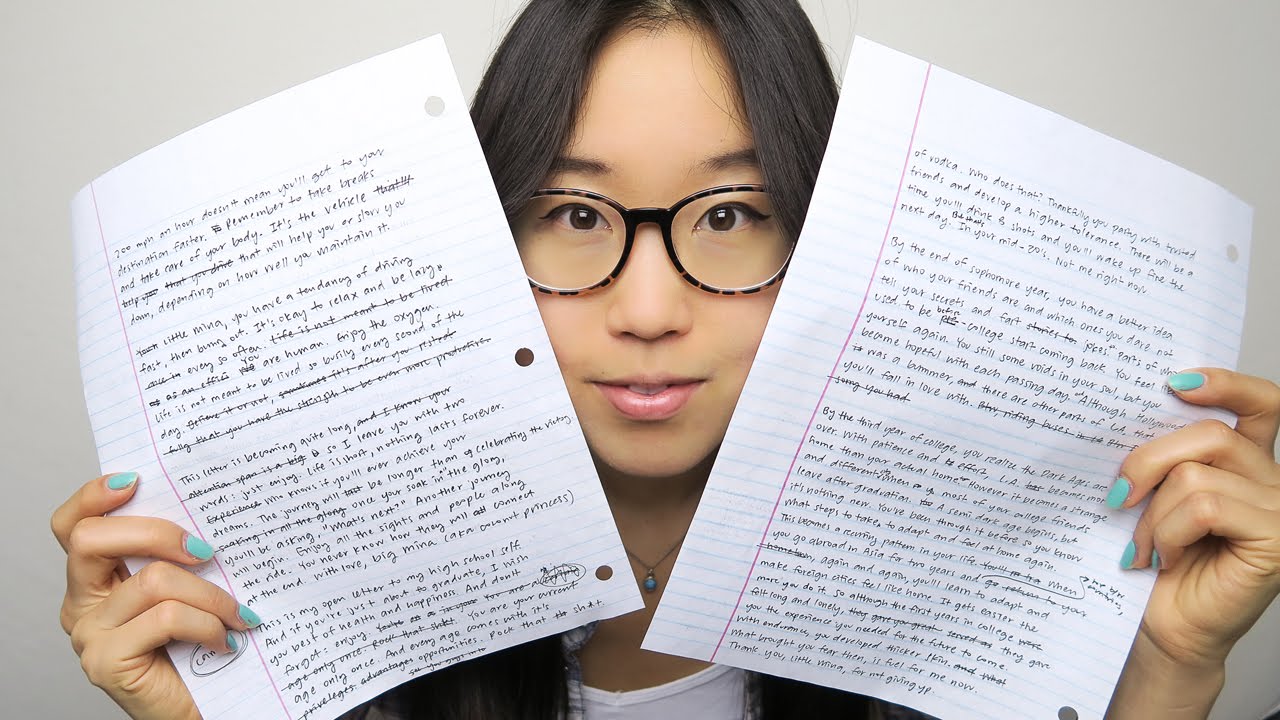 200 mph an hour doesn't mean you'll get to your
destination faster. Remember to take breaks
and take care of your body. It's the vehicle that'll
that will help you or slow you
down, depending on how well ya maintain it.
Little Mina, you have a tendancy of driving
fast, then burning off. It's okay to relax and be lazy
every so often. Life is not meant to be lived
as an office you are human. Enjoy the oxygen.
Life is not meant to be lived so busily every second of the
day.
fully that you have the strength to be even more productive.
This letter is becoming quite long, and I know your
attention span is a so I leave you with two
words: just enjoy. Life is short, nothing lasts forever.
Experience Who knows if you'll ever achieve your
dreams. The journey will be longer than celebrating the victory
making all the glory once you soak in the glory,
you'll be asking, "What's next?" Another journey
will begin. Enjoy all the sights and people along
the ride. You never know how they will all connect
at the end. With love, big Mina. (aka coconut princess)
This is my open letter to my high school self.
And if you're just about to graduate, I wish
you best of wealth and happiness. And don't
forget: enjoy You are your current
age only once. And every age comes with its
privileges. advantages opportunities. Rock that shit.
of vodka. Who does that? Thankfully you party with trusted
friends and develop a higher tolerance. There will be a
time you'll drink 8 shots, and you'll wake up fine the
next day. In your mid-20's. Not me right now.
By the end of sophomore year, you have a better idea
of who your friends are and which ones you dare not
tell your secrets and fart stories jokes. Parts of who
used to be before college start coming back. You feel
yourself again. You still some voids in your soul, but you
became hopeful with each passing day. Although Hollywood
it was a bummer, and there are other parts of LA that
you'll fall in love with.
song you had.
By the third year of college, you realize the Dark Ages are
over. With patience and effort L.A. becomes more
home than your actual home. However it becomes a strange
and different when most of your college friends
leave after graduation. A semi-dark age begins, but
it's nothing new. You've been through it before so you know
what steps to take, to adapt and feel at home again.
This becomes a recurring pattern in your life. When
you go abroad in Asia for two years and
again and again, you'll learn to adapt and
make foreign cities feel like home. It gets easier the
more you do it. So although the first years in college
felt long and lonely, they gave
you the experience you needed for the future to come.
With endurance, you developed thicker skin. and what
What brought you fear then, is fuel for me now.
Thank you, little Mina, for not giving up.